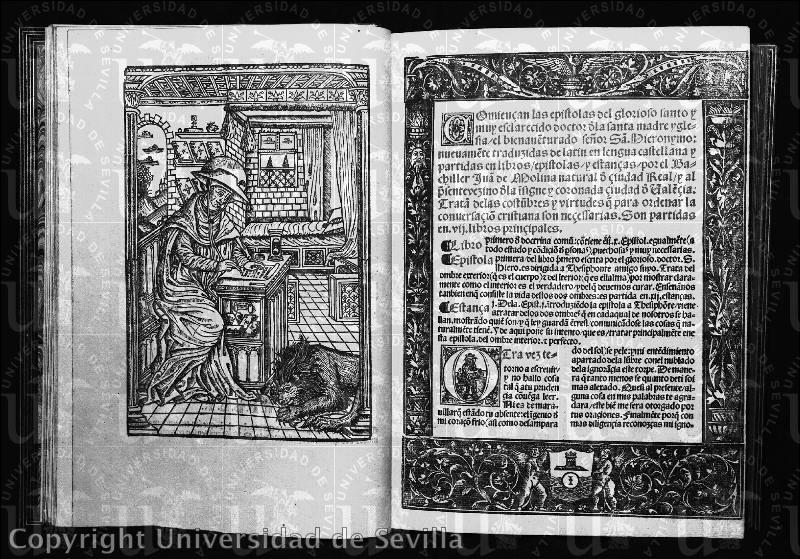 Comiençan las epistolas del glorioso santo y
muy esclarecido doctor d̃la santa madre ygle-
sia, el bienauẽturado señor Sã. Hieronymo:
nueuamẽte traduzidas de latin en lengua castellana y
partidas en libros/epistolas y estanças/por el Ba-
chiller Juã de Molina natural d̃ ciudad Real/y al
p̃sente vezino d̃la insigne y coronada ciudad d̃ Ualẽcia.
Tratã delas costũbres y virtudes q̃ para ordenar la
conuersaciõ cristiana son necessarias. Son partidas
en.vij.libros principales.
Libro primero d̃ doctrina comũ: cõtiene
todo estado y cõdiciõ d̃ psonas; puechosas y muy necessarias.
Epistola primera del libro p̃mero escrita por el glorioso.doctor.S.
Hiero. es dirigida a Thesiphonte amigo suyo. Trata del
ombre exterior: q̃ es el cuerpo: y del interior: q̃ es el alma: por mostrar clara-
mente como el interior es el verdadero y delq̃ deuemos curar. Enseñanos
tambien enq̃ consiste la vida destos dos ombres: es partida en.xij.estanças.
Estança .j. Dela.Epist.j. ītroduziẽdo la epistola a Thesiphõte: viene
a tratar delos dos ombres q̃ en cada qual de nosotros se ha-
llan. mostrãdo quiẽ son y q̃ ley guardã
naturalmẽte tienẽ. Y de aqui porq̃ su intento que es tratar principalmẽte en e-
sta epistola. del ombre interior. y perfecto.
Otra vez te-
torno a escreuir
y no hallo cosa
tal q̃ a tu pruden
cia cõuẽga leer.
Ni es de mara-
uillar q̃ estãdo tu absente: el igenio y
mi coraçõ frio (asi como desampara
do del sol) se pele: y mi entẽdimiento
apartado dela lũbre con el nublado
dela ignorãcia este torpe. De mane-
ra q̃ tanto menos se quanto de ti soi
mas alexado. Mas si al presente/al-
guna cosa en mis palabras te agra-
dara/este biẽ me sera otorgado por
tus oraciones. Finalmẽte porq̃ con
mas diligẽcia reconozcas mi igno-
Copyright Universidad de Sevilla